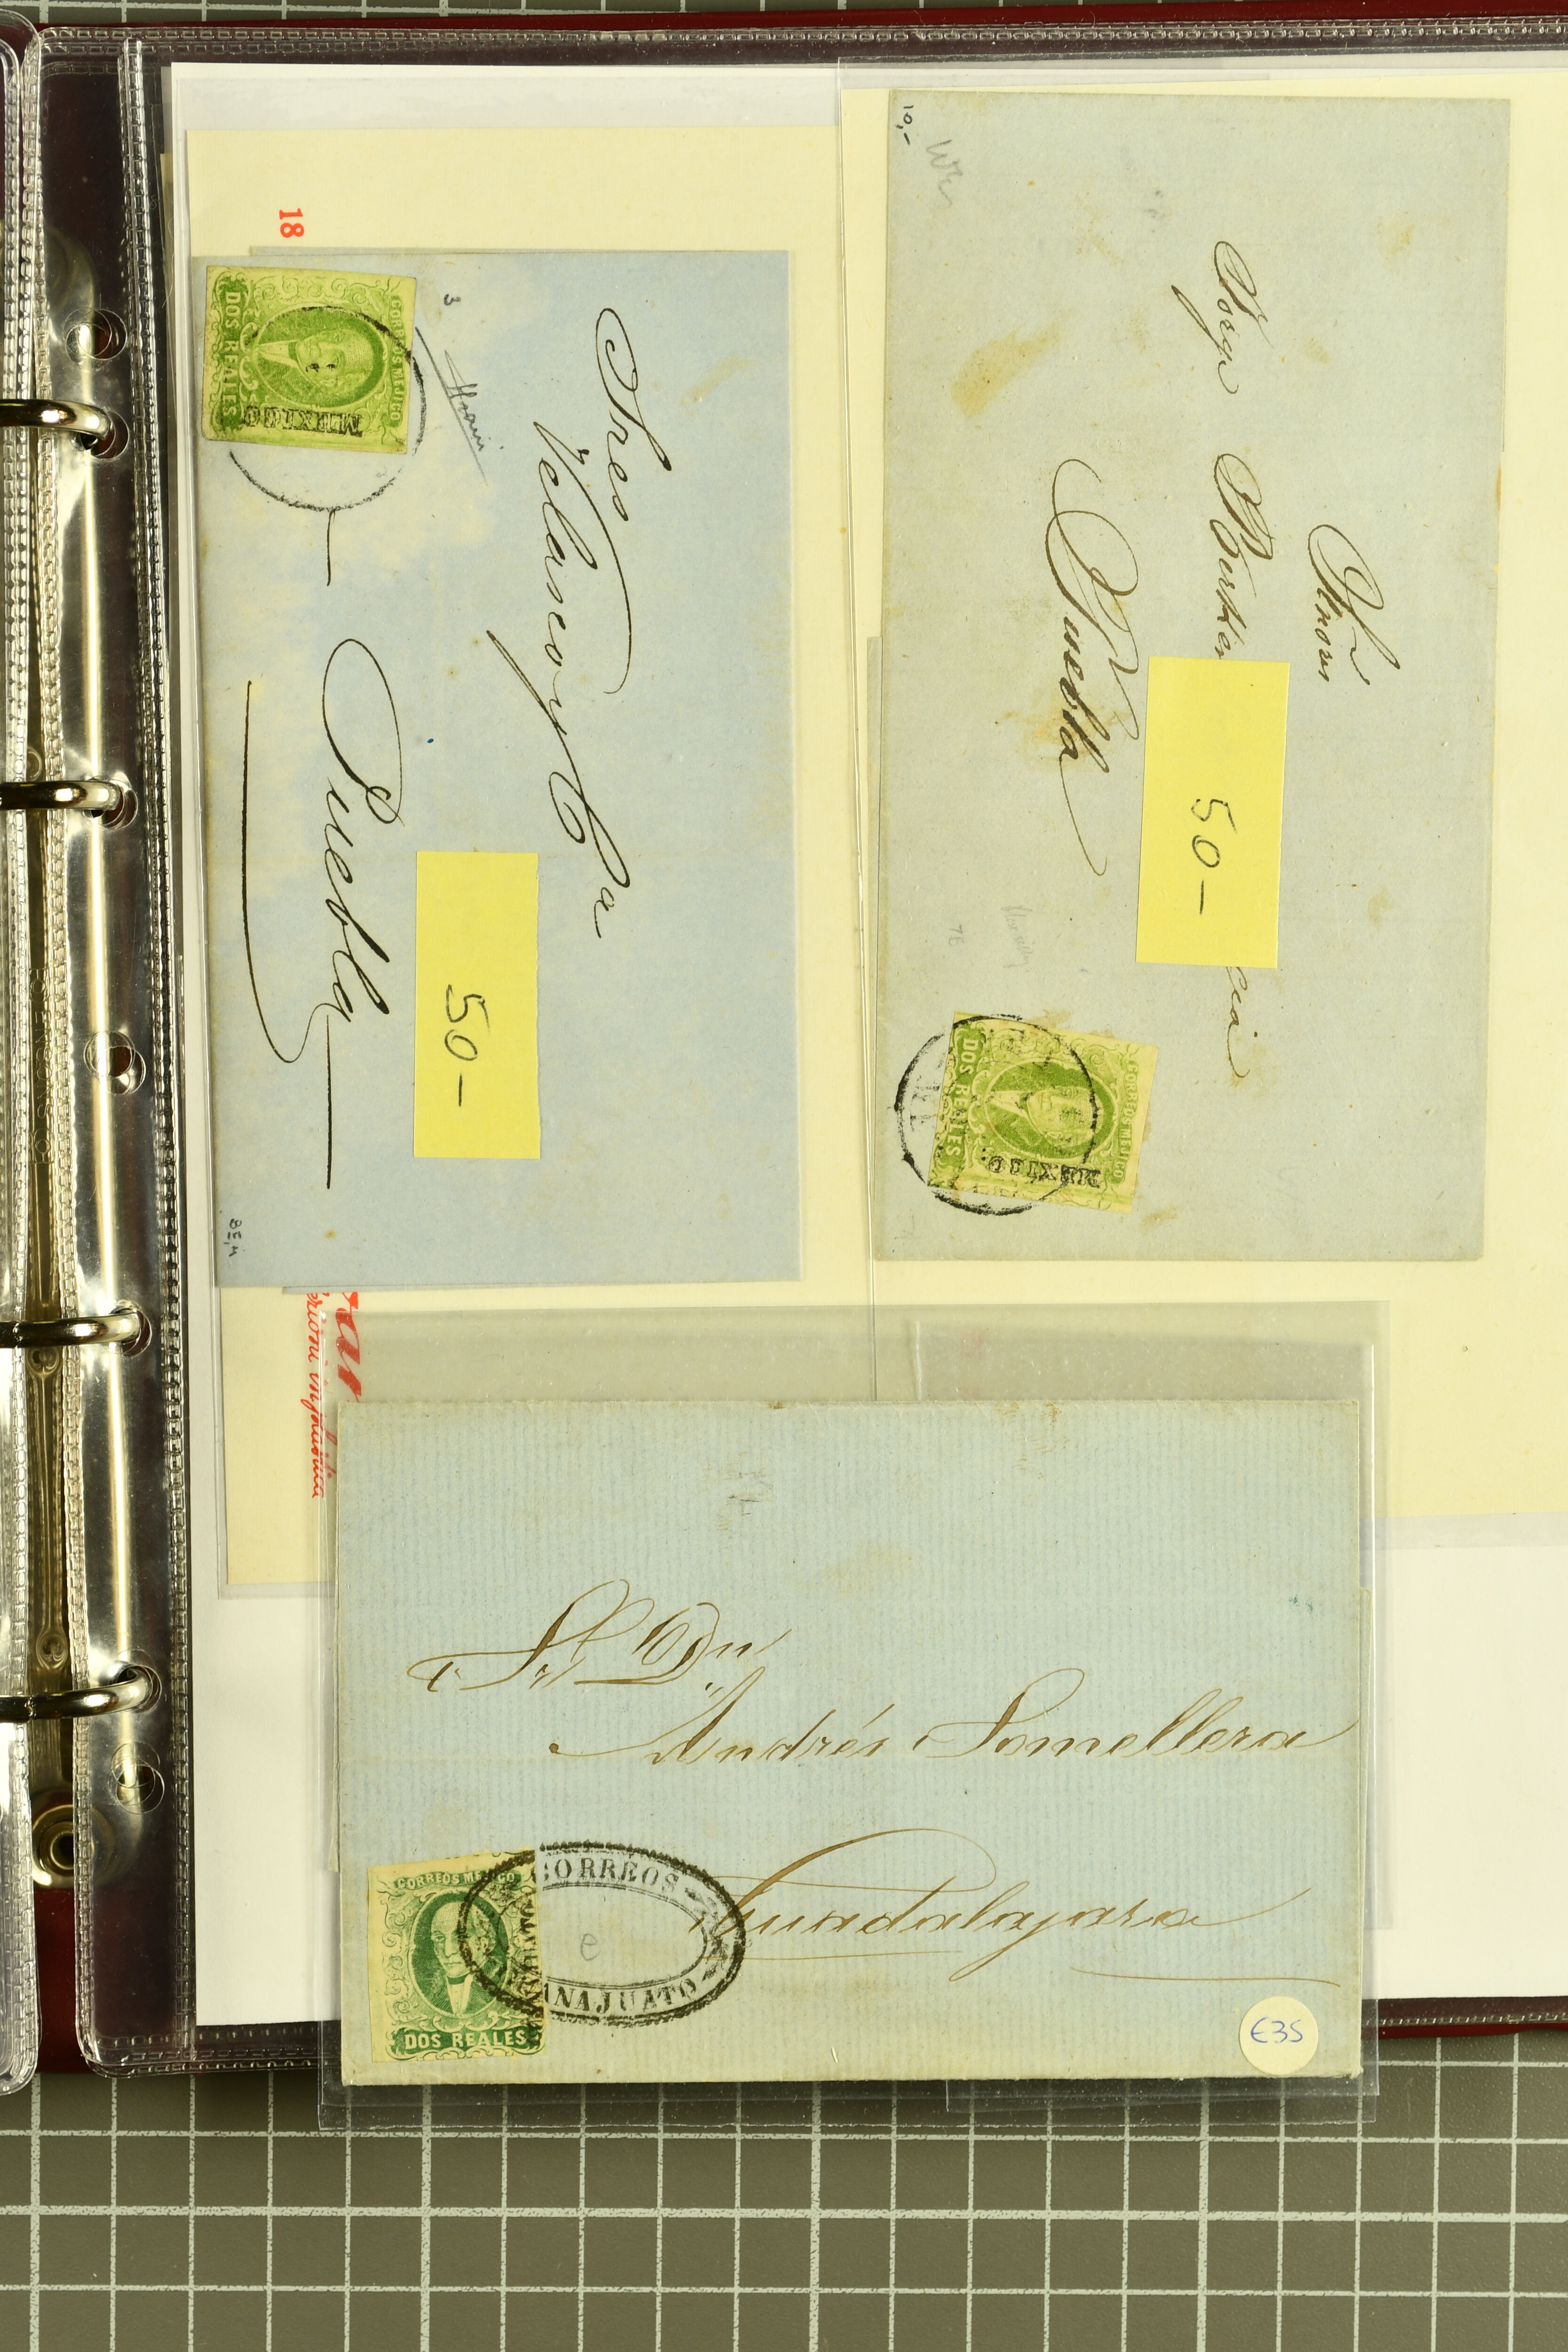 18
CORREOS MEJICO
DOS REALES
MEXICO
3
Sres
Velasco y Ca
Puebla
50-
10,-
Señores
Puebla
50-
78
CORREOS MEJICO
DOS REALES
MEXICO
Sr. Dn.
Andrés Somellera
Guadalajara
CORREOS MEJICO
DOS REALES
CORREOS
ANAJUATO
e
€35